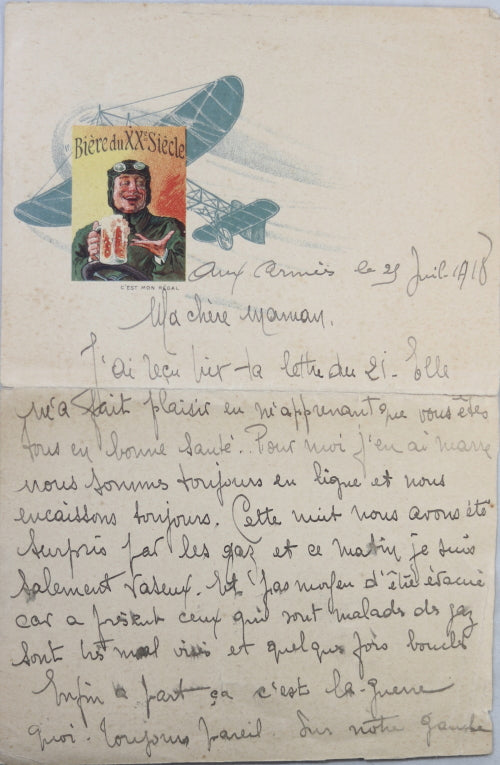 "Bière du XXe Siècle
C'EST MON RÉGAL
Aux Armées le 25 Juil. 1918
Ma chère Maman,
J'ai reçu hier ta lettre du 21. Elle
m'a fait plaisir en m'apprenant que vous êtes
tous en bonne santé.. Pour moi j'en ai marre
nous sommes toujours en ligne et nous
encaissons toujours. Cette nuit nous avons été
surpris par les gaz et ce matin je suis
salement vaseux. Et pas moyen d'être évacué
car a présent ceux qui sont malades des gaz
sont très mal vus et quelques fois bouclés
Enfin a part ça c'est la guerre
quoi. Toujours pareil Sur notre gauche